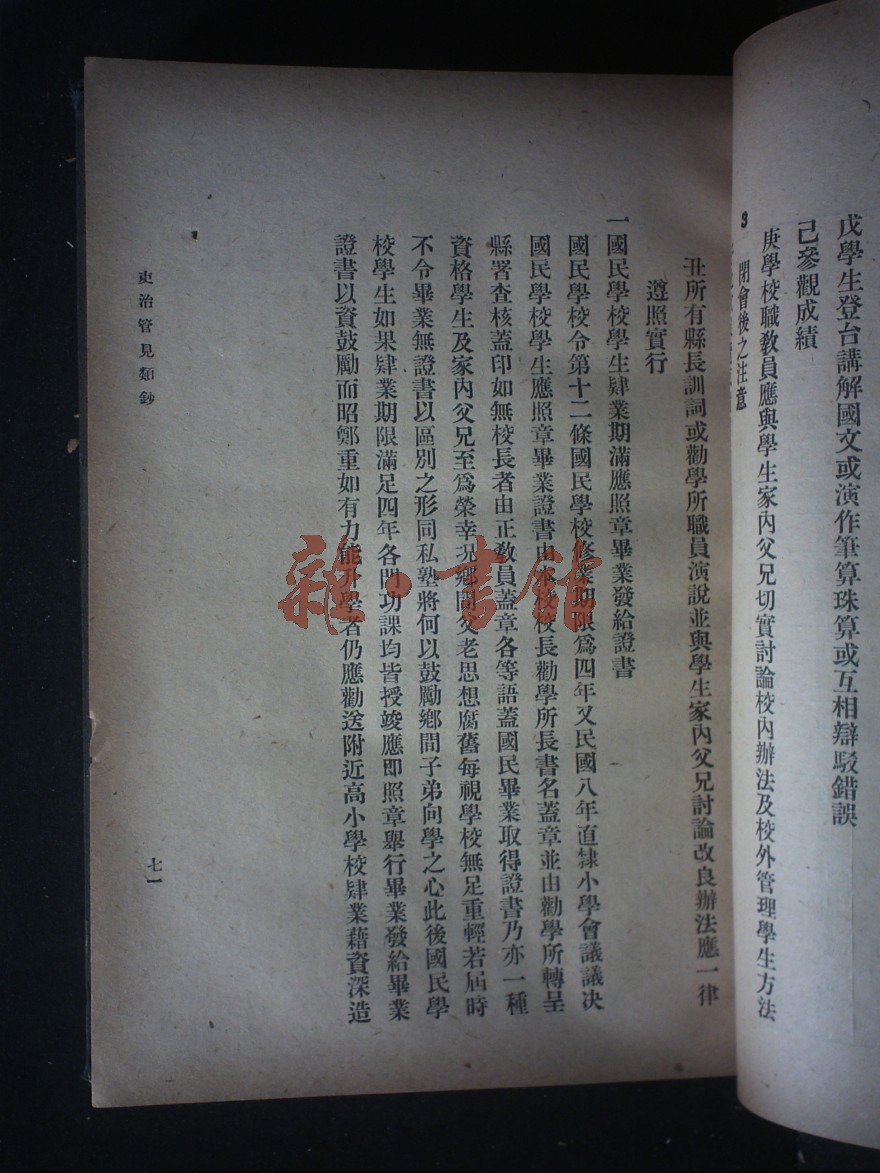 戊學生登台講解國文或演作筆算珠算或互相辯駁錯誤
己參觀成績
庚學校職教員應與學生家內父兄切實討論校內辦法及校外管理學生方法
3 閉會後之注意
丑所有縣長訓詞或勸學所職員演說並與學生家內父兄討論改良辦法應一律
遵照實行
一國民學校學生肄業期滿應照章畢業發給證書
國民學校令第十二條國民學校修業期限爲四年又民國八年直隸小學會議議决
國民學校學生應照章畢業證書由本校校長勸學所長書名蓋章並由勸學所轉呈
縣署查核蓋印如無校長者由正教員蓋章各等語蓋國民畢業取得證書乃亦一種
資格學生及家內父兄至爲榮幸况鄉間父老思想腐舊每視學校無足重輕若屆時
不令畢業無證書以區別之形同私塾將何以鼓勵鄉間子弟向學之心此後國民學
校學生如果肄業期限滿足四年各門功課均皆授竣應即照章舉行畢業發給畢業
證書以資鼓勵而昭鄭重如有力能升學者仍應勸送附近高小學校肄業藉資深造
吏治管見類鈔
七一
雜·書館